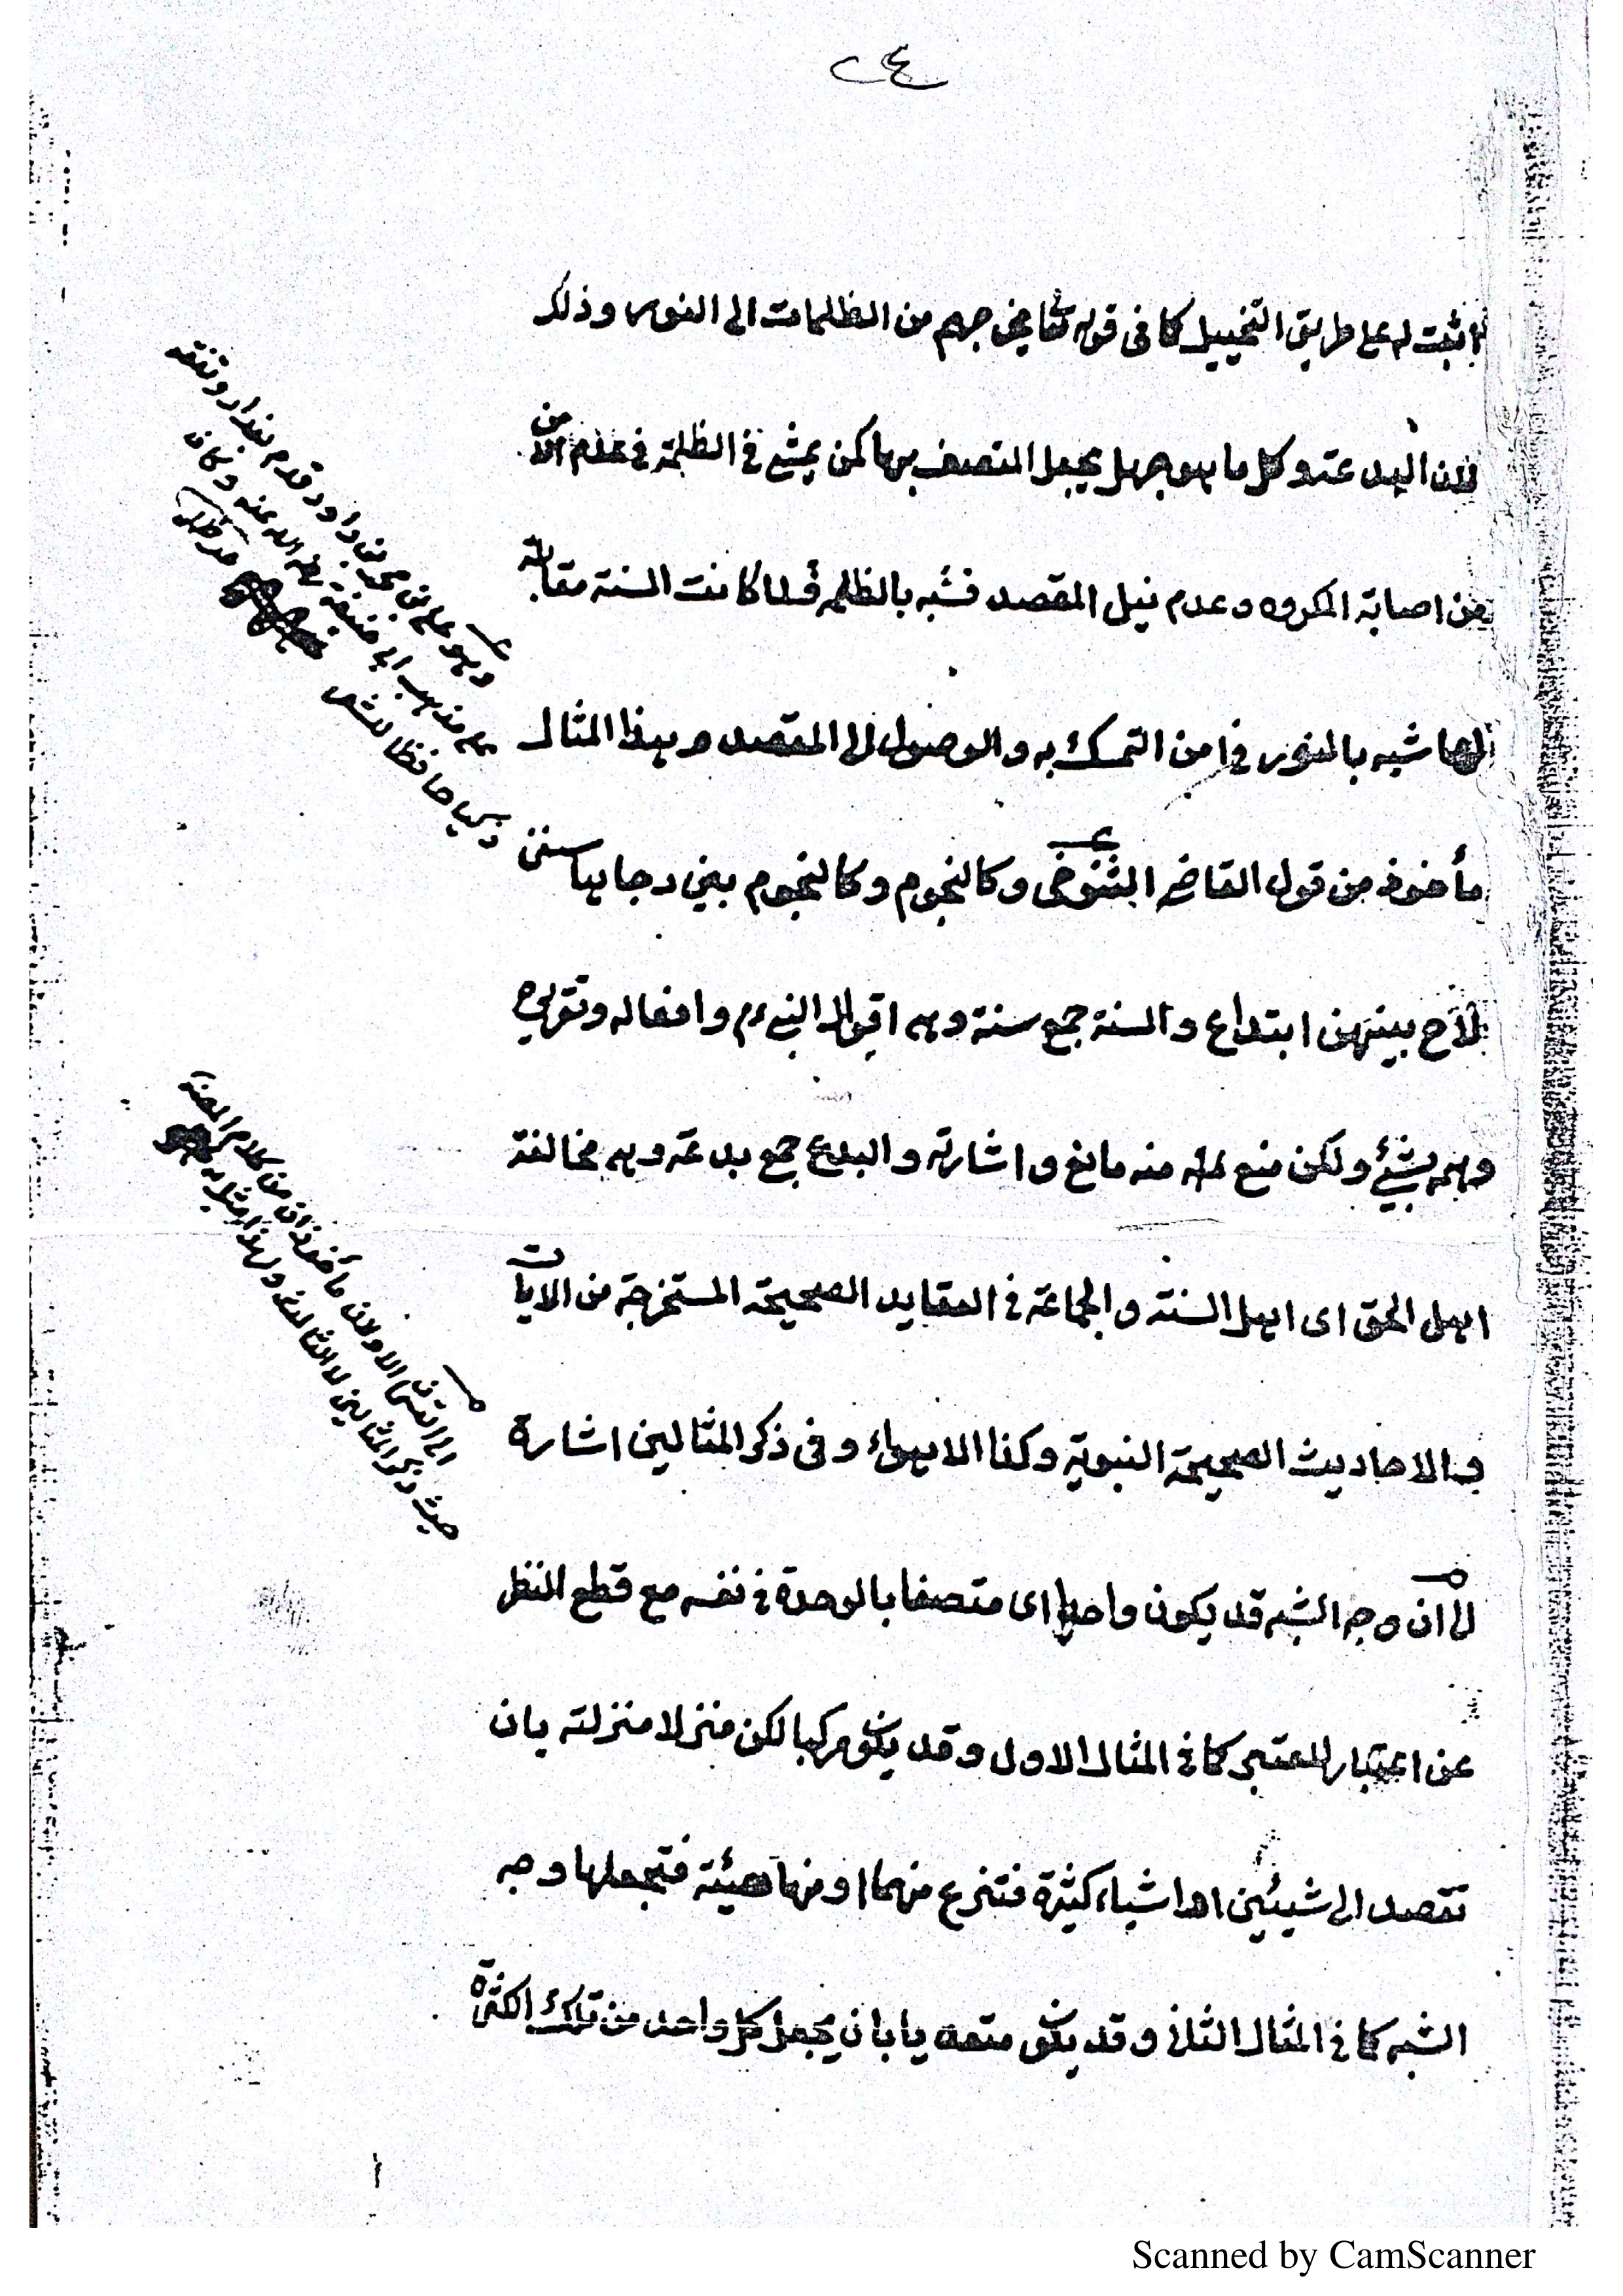 ٢٤
اثبت له على طريق التخييل كما في قوله تعا يخرجهم من الظلمات الى النور وذلك
لان البدعة وكل ما هو جهل يجعل المتصف بها كمن يمشي في الظلمة في عدم الامن
من اصابة المكروه وعدم نيل المقصد فشبه بالظلمة فلما كانت السنة مقابلة
لها شبه بالنور في امن التمسك به والوصول الى المقصد وهذا المثال
مأخوذ من قول القاضي التنوخي وكالنجوم وكالنجوم بين دجاها سنن
لاح بينهن ابتداع والسنن جمع سنة وهي اقوال النبي ءم وافعاله وتقريره
وهمه بشيء ولكن منع له منه مانع واشارته والبدع جمع بدعة وهي مخالفة
اهل الحق اى اهل السنة والجماعة في العقايد الصحيحة المستخرجة من الايات
والاحاديث الصحيحة النبوية وكذا الاهواء وفى ذكر المثالين اشارة
الى ان وجه الشبه قد يكون واحدا اى متصفا بالوحدة في نفسه مع قطع النظر
عن اعتبار المعتبر كما في المثال الاول وقد يكون مركبا لكن منزلا منزلته بان
تقصد الى شيئين او اشياء كثيرة فتنزع منهما او منها هيئة فتجعلها وجه
الشبه كما في المثال الثاني وقد يكون متعددا بان يجعل كل واحد من تلك الكثرة
وهو على بن محمد بن داود قدم بغداد وتفقه
على مذهب ابي حنيفة رضي الله عنه وكان
حافظا للشعر
الاولان مأخوذان من كلام
حيث ذكر المثالين
Scanned by CamScanner